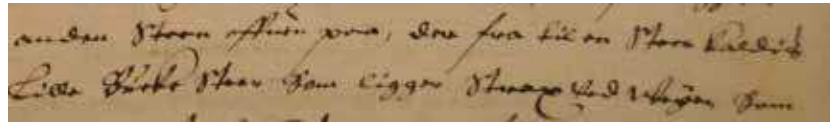 anden Steen offuen paa, der fra til en Steen kaldis
Lille Birke Steen Som ligger Strax ved Weyen Som